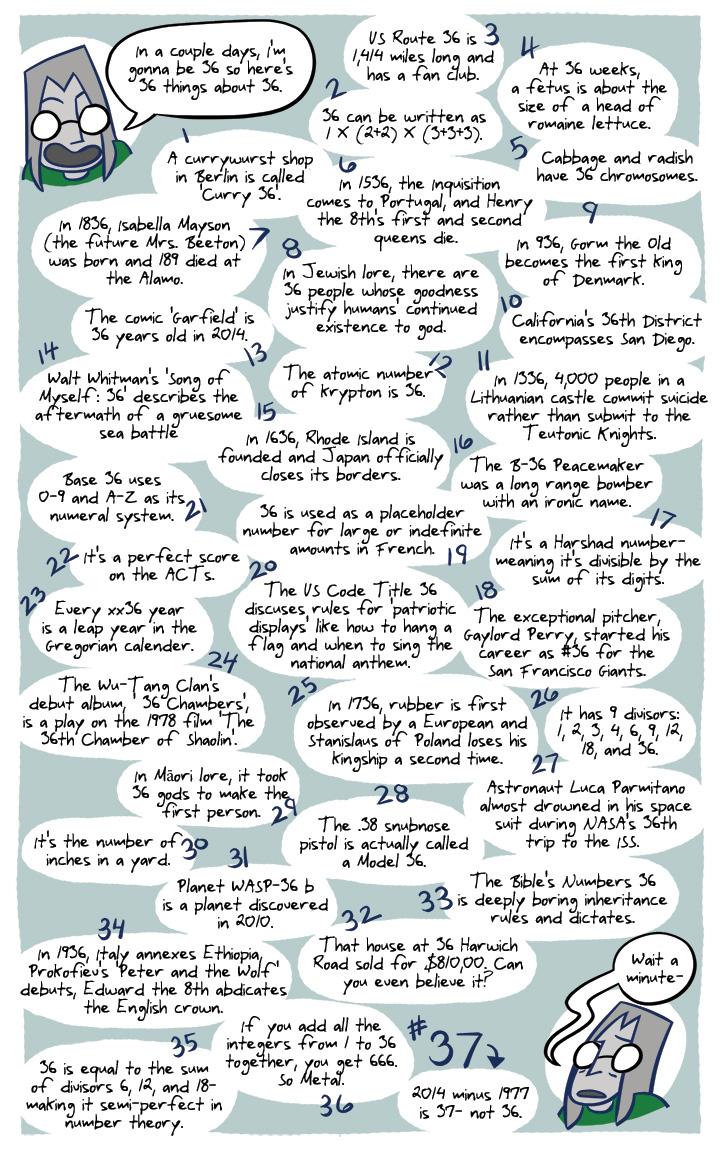 In a couple days, i'm
gonna be 36 so here's
36 things about 36.
1
A currywurst shop
in Berlin is called
'Curry 36'.
2
36 can be written as
1 X (2+2) X (3+3+3).
3
US Route 36 is
1,414 miles long and
has a fan club.
4
At 36 weeks,
a fetus is about the
size of a head of
romaine lettuce.
5
Cabbage and radish
have 36 chromosomes.
6
In 1536, the Inquisition
comes to Portugal, and Henry
the 8th's first and second
queens die.
7
In 1836, Isabella Mayson
(the future Mrs. Beeton)
was born and 189 died at
the Alamo.
8
In Jewish lore, there are
36 people whose goodness
justify humans' continued
existence to god.
9
In 936, Gorm the Old
becomes the first king
of Denmark.
10
California's 36th District
encompasses San Diego.
11
In 1336, 4,000 people in a
Lithuanian castle commit suicide
rather than submit to the
Teutonic Knights.
12
The atomic number
of krypton is 36.
13
The comic 'Garfield' is
36 years old in 2014.
14
Walt Whitman's 'Song of
Myself: 36' describes the
aftermath of a gruesome
sea battle
15
In 1636, Rhode Island is
founded and Japan officially
closes its borders.
16
The B-36 Peacemaker
was a long range bomber
with an ironic name.
17
It's a Harshad number-
meaning it's divisible by the
sum of its digits.
18
The exceptional pitcher,
Gaylord Perry, started his
career as #36 for the
San Francisco Giants.
19
36 is used as a placeholder
number for large or indefinite
amounts in French.
20
The US Code Title 36
discuses rules for 'patriotic
displays' like how to hang a
flag and when to sing the
national anthem.
21
Base 36 uses
0-9 and A-Z as its
numeral system.
22
It's a perfect score
on the ACTs.
23
Every xx36 year
is a leap year in the
Gregorian calender.
24
The Wu-Tang Clan's
debut album, '36 Chambers',
is a play on the 1978 film 'The
36th Chamber of Shaolin'.
25
In 1736, rubber is first
observed by a European and
Stanislaus of Poland loses his
kingship a second time.
26
It has 9 divisors:
1, 2, 3, 4, 6, 9, 12,
18, and 36.
27
Astronaut Luca Parmitano
almost drowned in his space
suit during NASA's 36th
trip to the ISS.
28
The .38 snubnose
pistol is actually called
a Model 36.
29
In Māori lore, it took
36 gods to make the
first person.
30
It's the number of
inches in a yard.
31
Planet WASP-36 b
is a planet discovered
in 2010.
32
That house at 36 Harwich
Road sold for $810,00. Can
you even believe it?
33
The Bible's Numbers 36
is deeply boring inheritance
rules and dictates.
34
In 1936, Italy annexes Ethiopia,
Prokofiev's 'Peter and the Wolf'
debuts, Edward the 8th abdicates
the English crown.
35
36 is equal to the sum
of divisors 6, 12, and 18-
making it semi-perfect in
number theory.
If you add all the
integers from 1 to 36
together, you get 666.
So Metal.
36
#37
2014 minus 1977
is 37- not 36.
Wait a
minute-